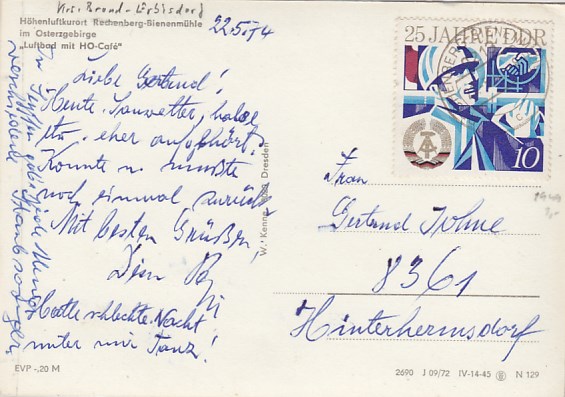 Krs. Brand-Erbisdorf
Höhenluftkurort Rechenberg-Bienenmühle
im Osterzgebirge
„Luftbad mit HO-Café"
22.5.74
Liebe Gertrud!
Heute Sauwetter, habe
etw. eher aufgehört.
Konnte u. mußte
noch einmal zurück
Mit besten Grüßen
Dein
Hatte schlechte Nacht
unter mir Tanz!
In Seiffen gibt es jede Menge
verschiedene
W. Kenne Dresden
25 JAHRE DDR
10
Frau
Gertrud Johne
8361
Hinterhermsdorf
EVP -,20 M
2690 J 09/72 IV-14-45 N 129